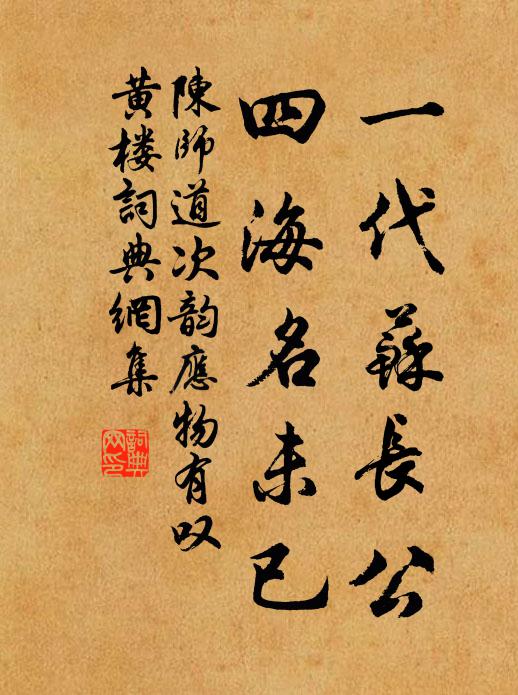 一代蘇長公
四海名未已
陳師道次韵應物有叹
黄楼詞典網集
詞典
网印